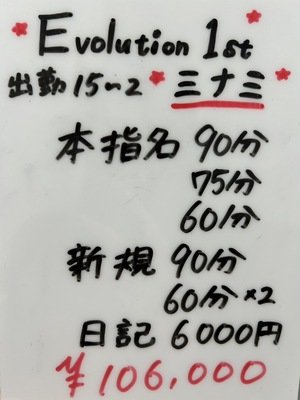 Evolution 1st
出勤15~2 ミナミ
本指名 90分
75分
60分
新規 90分
60分×2
日記 6000円
¥106,000